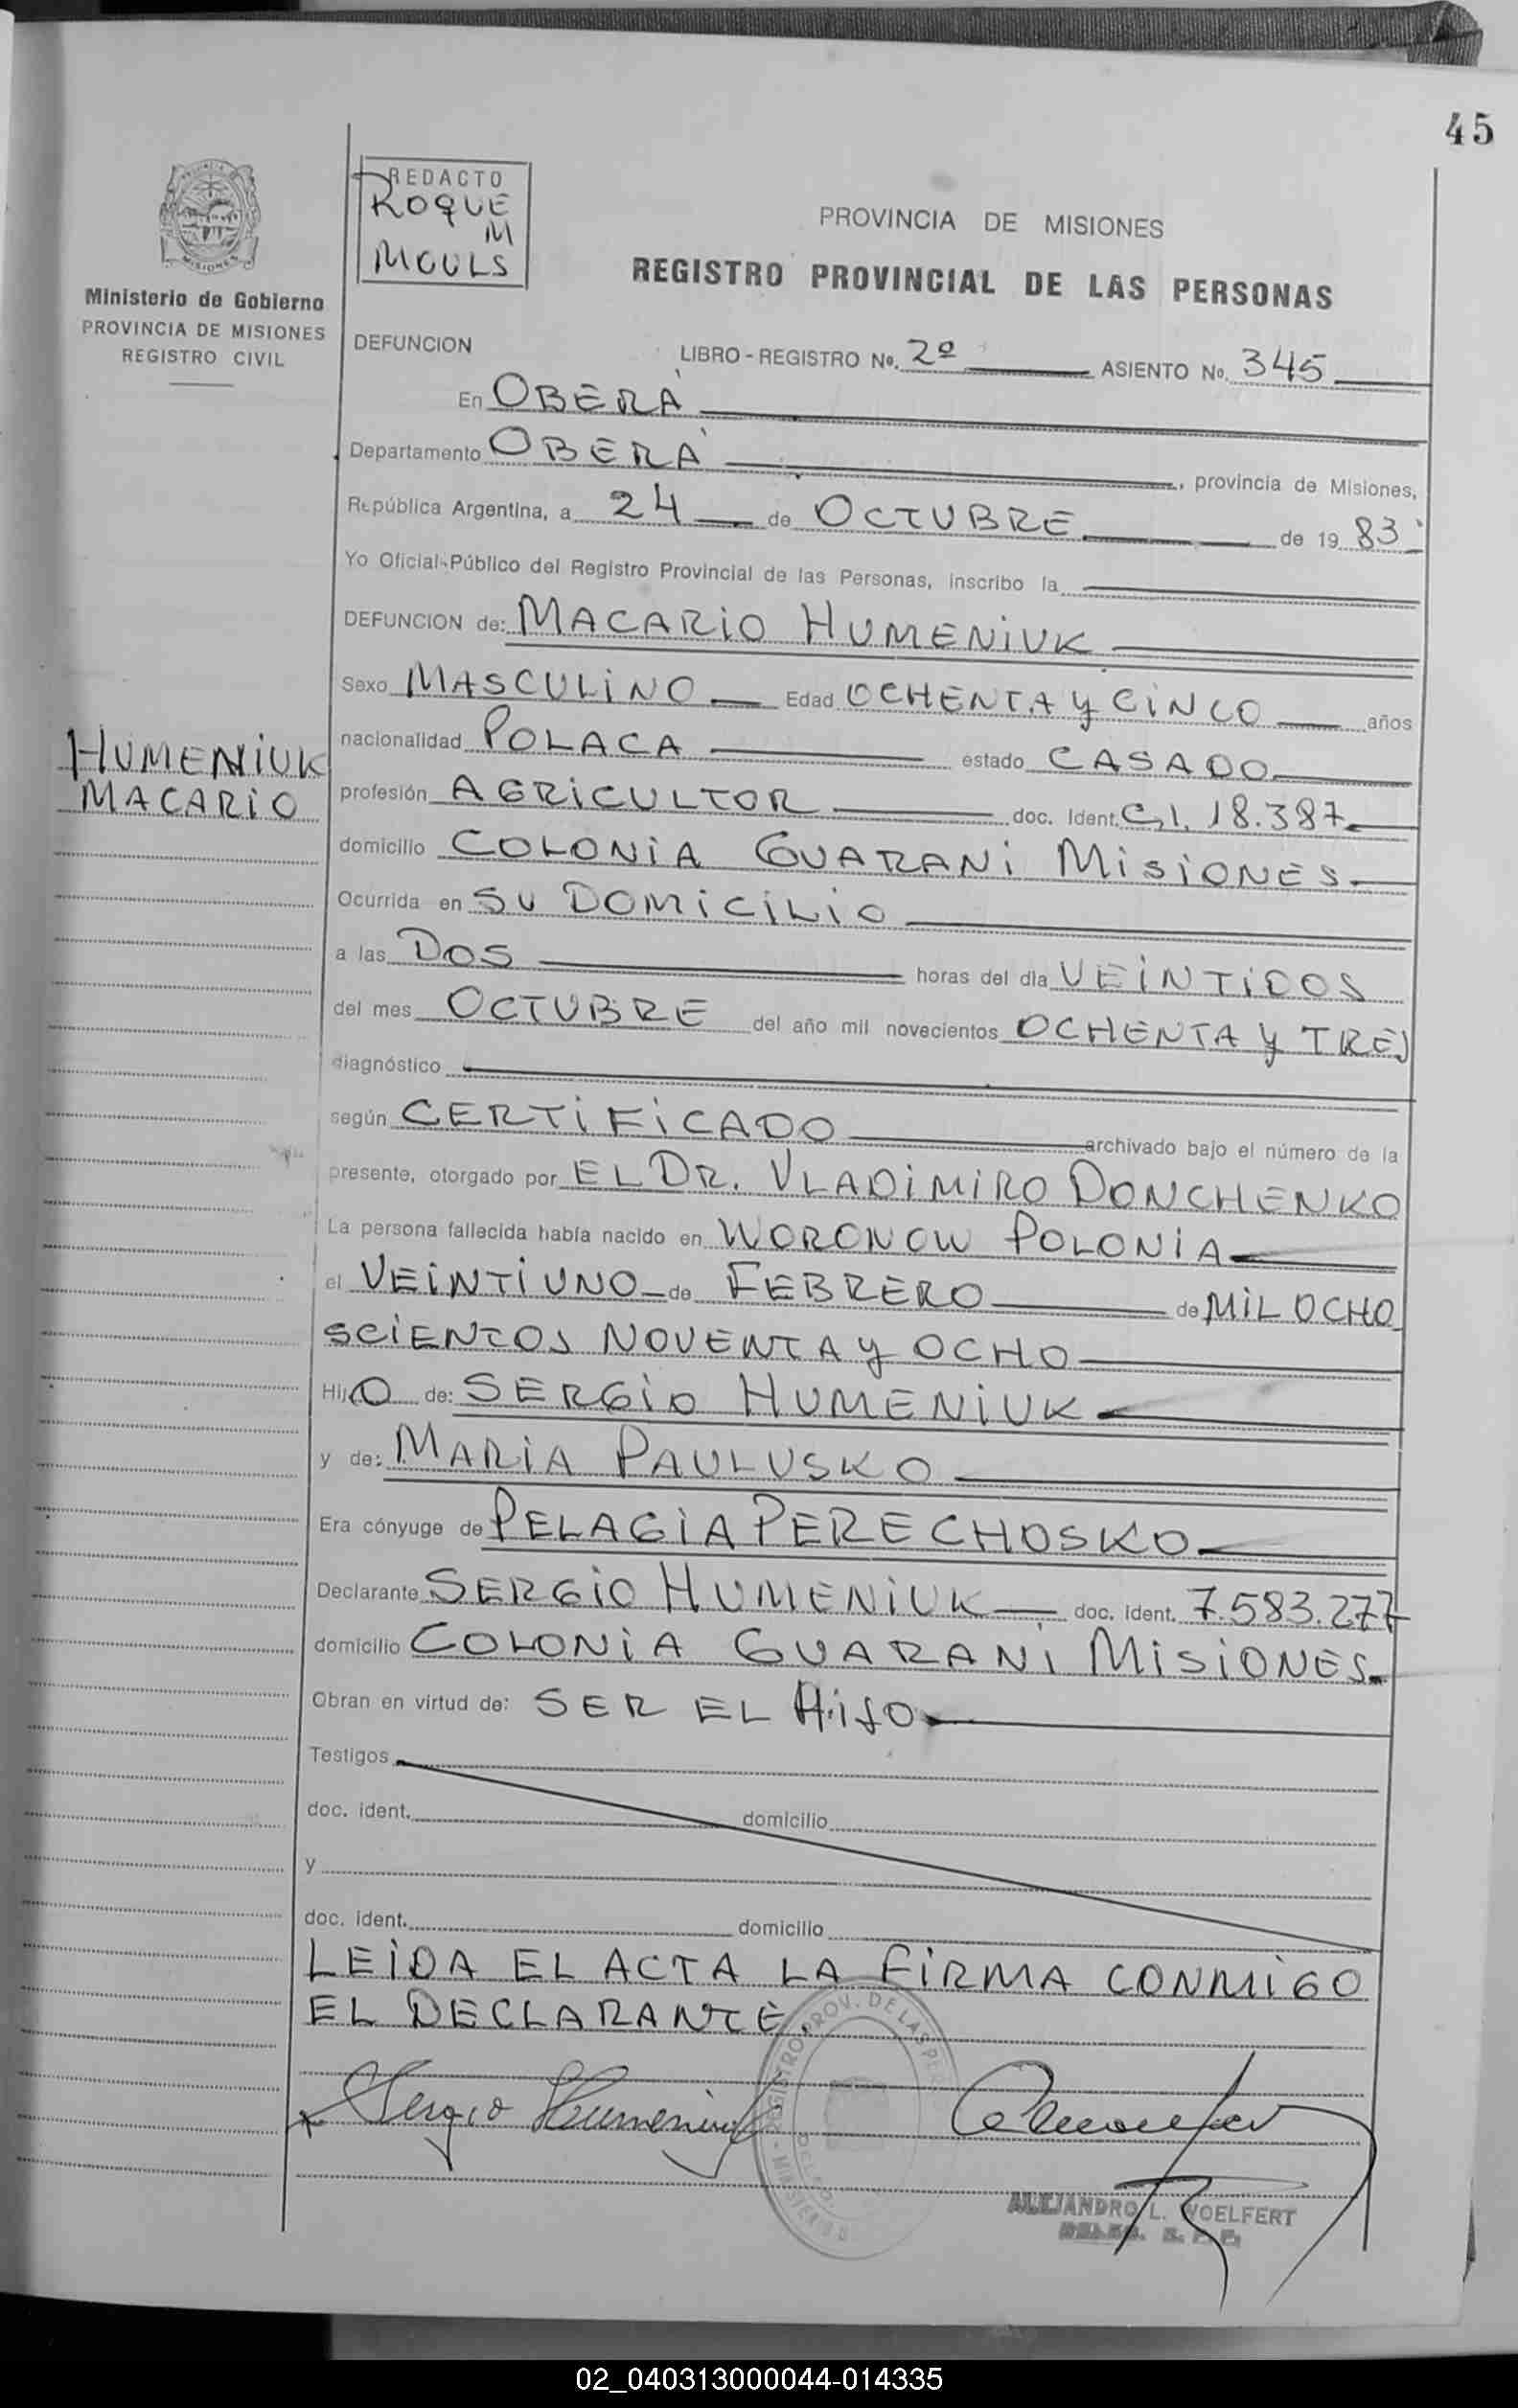 45
REDACTO
ROQUE
M
MOULS
PROVINCIA DE MISIONES
REGISTRO PROVINCIAL DE LAS PERSONAS
MISIONES
Ministerio de Gobierno
PROVINCIA DE MISIONES
REGISTRO CIVIL
DEFUNCION LIBRO - REGISTRO No. 2º ASIENTO No. 345
En OBERÁ
Departamento OBERÁ, provincia de Misiones,
República Argentina, a 24 de OCTUBRE de 19 83
Yo Oficial Público del Registro Provincial de las Personas, inscribo la
DEFUNCION de: MACARIO HUMENIUK
Sexo MASCULINO Edad OCHENTA Y CINCO años
HUMENIUK
MACARIO
nacionalidad POLACA estado CASADO
profesión AGRICULTOR doc. Ident. C.I. 18.387
domicilio COLONIA GUARANI MISIONES
Ocurrida en SU DOMICILIO
a las DOS horas del dia VEINTIDOS
del mes OCTUBRE del año mil novecientos OCHENTA Y TRES
diagnóstico
según CERTIFICADO archivado bajo el número de la
presente, otorgado por EL DR. VLADIMIRO DONCHENKO
La persona fallecida había nacido en WORONOW POLONIA
el VEINTIUNO de FEBRERO de MIL OCHO
SCIENTOS NOVENTA Y OCHO
HijO de: SERGIO HUMENIUK
y de: MARIA PAULUSKO
Era cónyuge de PELAGIA PERECHOSKO
Declarante SERGIO HUMENIUK doc. ident. 7.583.277
domicilio COLONIA GUARANI MISIONES
Obran en virtud de: SER EL HIJO
Testigos
doc. ident. domicilio
y
doc. ident. domicilio
LEIDA EL ACTA LA FIRMA CONMIGO
EL DECLARANTE.
REGISTRO PROV. DE LAS PER
Sergio Humeniuk
ALEJANDRO L. WOELFERT
02_040313000044-014335